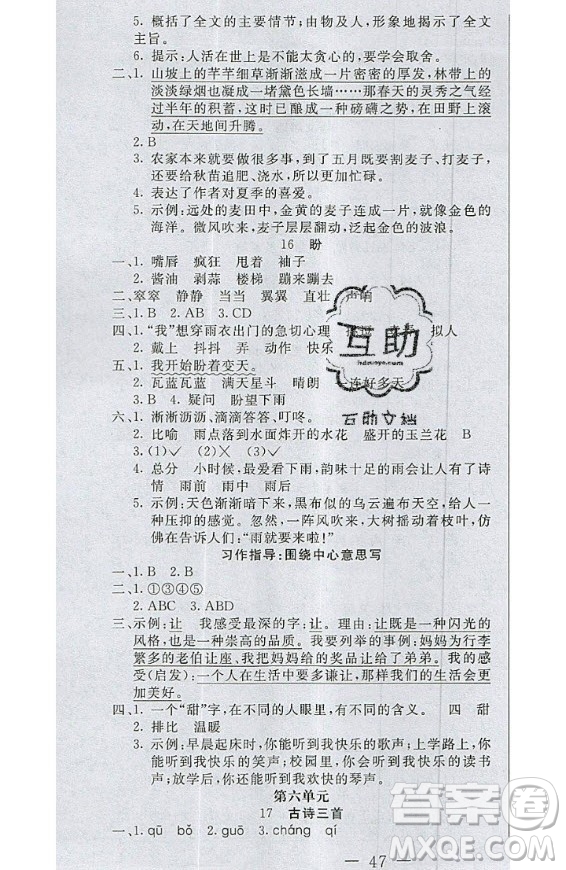 5. 概括了全文的主要情节;由物及人,承上启下;揭示了全文
主旨。
6. 提示:人活在世上是不能太贪心的,要学会取舍。
二、1. 山坡上的芊芊细草渐渐滋成一片密密的厚发,林带上的
淡淡绿烟也凝成一堵黛色长墙……那春天的灵秀之气经
过半年的积蓄,这时已酿成一种磅礴之势,在田野上滚
动,在天地间升腾。
2. B
3. 农家本来就要做很多事,到了五月既要割麦子、打麦子,
还要给秋苗追肥、浇水,所以更加忙碌。
4. 表达了作者对夏季的喜爱。
5. 示例:远处的麦田中,金黄的麦子连成一片,就像金色的
海洋。微风吹来,麦子层层翻动,似金色的波浪。
16 盼
一、1. 嘴唇 疯狂 甩着 袖子
2. 酱油 剥蒜 楼梯 蹦来蹦去
二、窣窣 静静 当当 翼翼 直壮 声响
三、1. B 2. AB 3. CD
四、1. “我”想穿雨衣出门的急切心理 拟人
2. 戴上 抖抖 弄 动作 快乐
五、1. 我开始盼着变天。
2. 瓦蓝瓦蓝 满天星斗 晴朗 一连好多天
3. B 4. 疑问 盼望下雨
六、1. 淅淅沥沥、滴滴答答、叮咚。
2. 比喻 雨点落到水面炸开的水花 盛开的玉兰花 B
3. (1)✓ (2)✕ (3)✓
4. 总分 小时候,最爱看下雨,韵味十足的雨会让人有了诗
情 雨前 雨中 雨后
5. 示例:天色渐渐暗下来,黑布似的乌云遍布天空,给人一
种压抑的感觉。忽然,一阵风吹来,大树摇动着身体,仿
佛在告诉人们:“雨就要来啦!”
习作指导:围绕中心意思写
一、1. B 2. B
二、1. ①③④⑤
2. ABC 3. ABD
三、示例:让 我感受最深的字:让。理由:让是一种闪光的
风格,也是一种崇高的品质。我要列举的事例:妈妈为行李
繁多的老伯让座、我把妈妈给的奖品让给了弟弟。我的感
受(启发):一个人在生活中要多谦让,那样我们的生活会
更加美好。
四、1. 一个“甜”字,在不同的人眼里,有不同的含义。 四 甜
2. 排比 温暖
3. 示例:早晨起床时,你能听到我快乐的歌声;上学路上,你
能听到我快乐的笑声;校园里,你能听到我快乐的读书
声;放学后,你能听到我欢快的琴声。
第六单元
17 古诗三首
一、1. qū bǒ 2. guō 3. cháng qí
— 47 —
互助
互助文档
答案圈
MXQE.COM